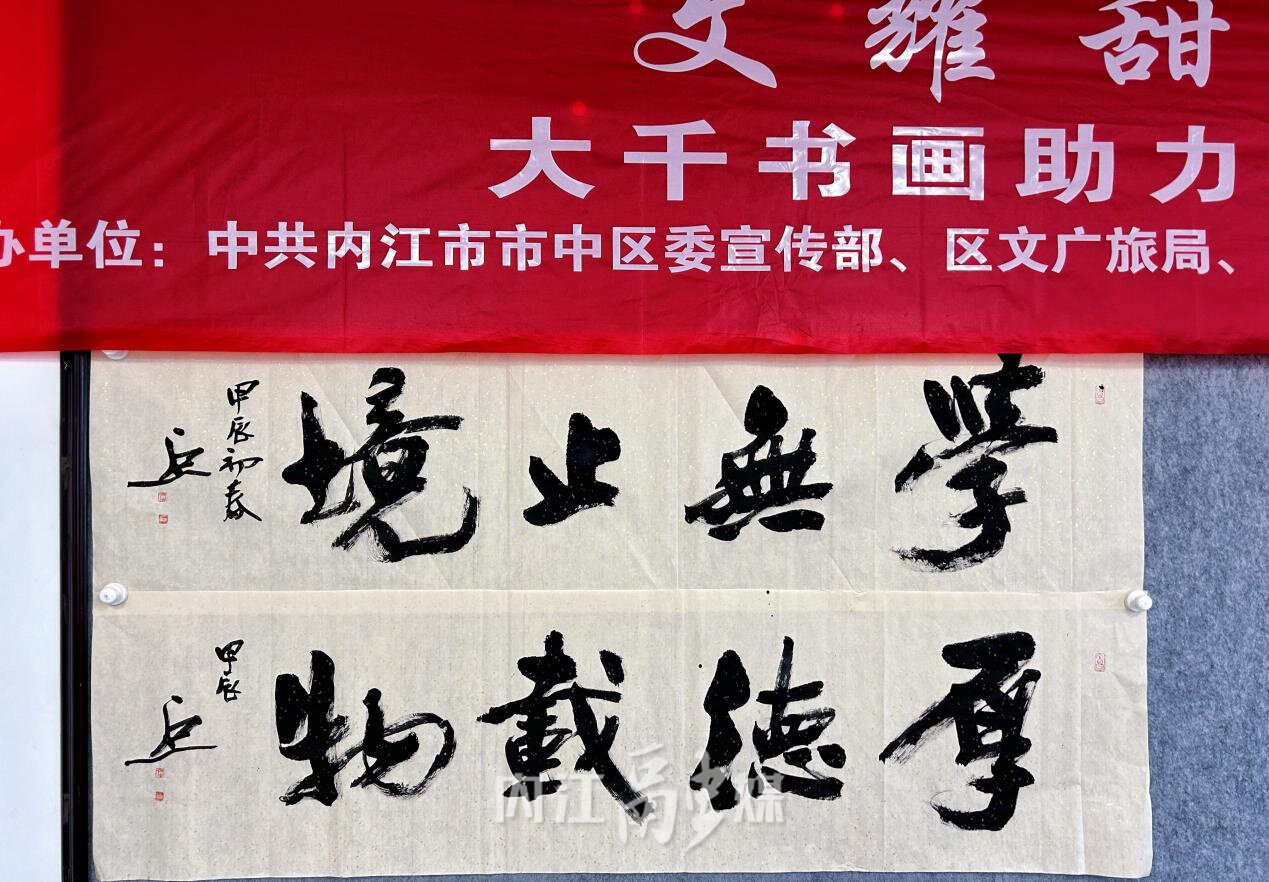 文耀甜
大千书画助力
办单位：中共内江市市中区委宣传部、区文广旅局、
學無止境
甲辰初春
厚德載物
甲辰
内江融媒